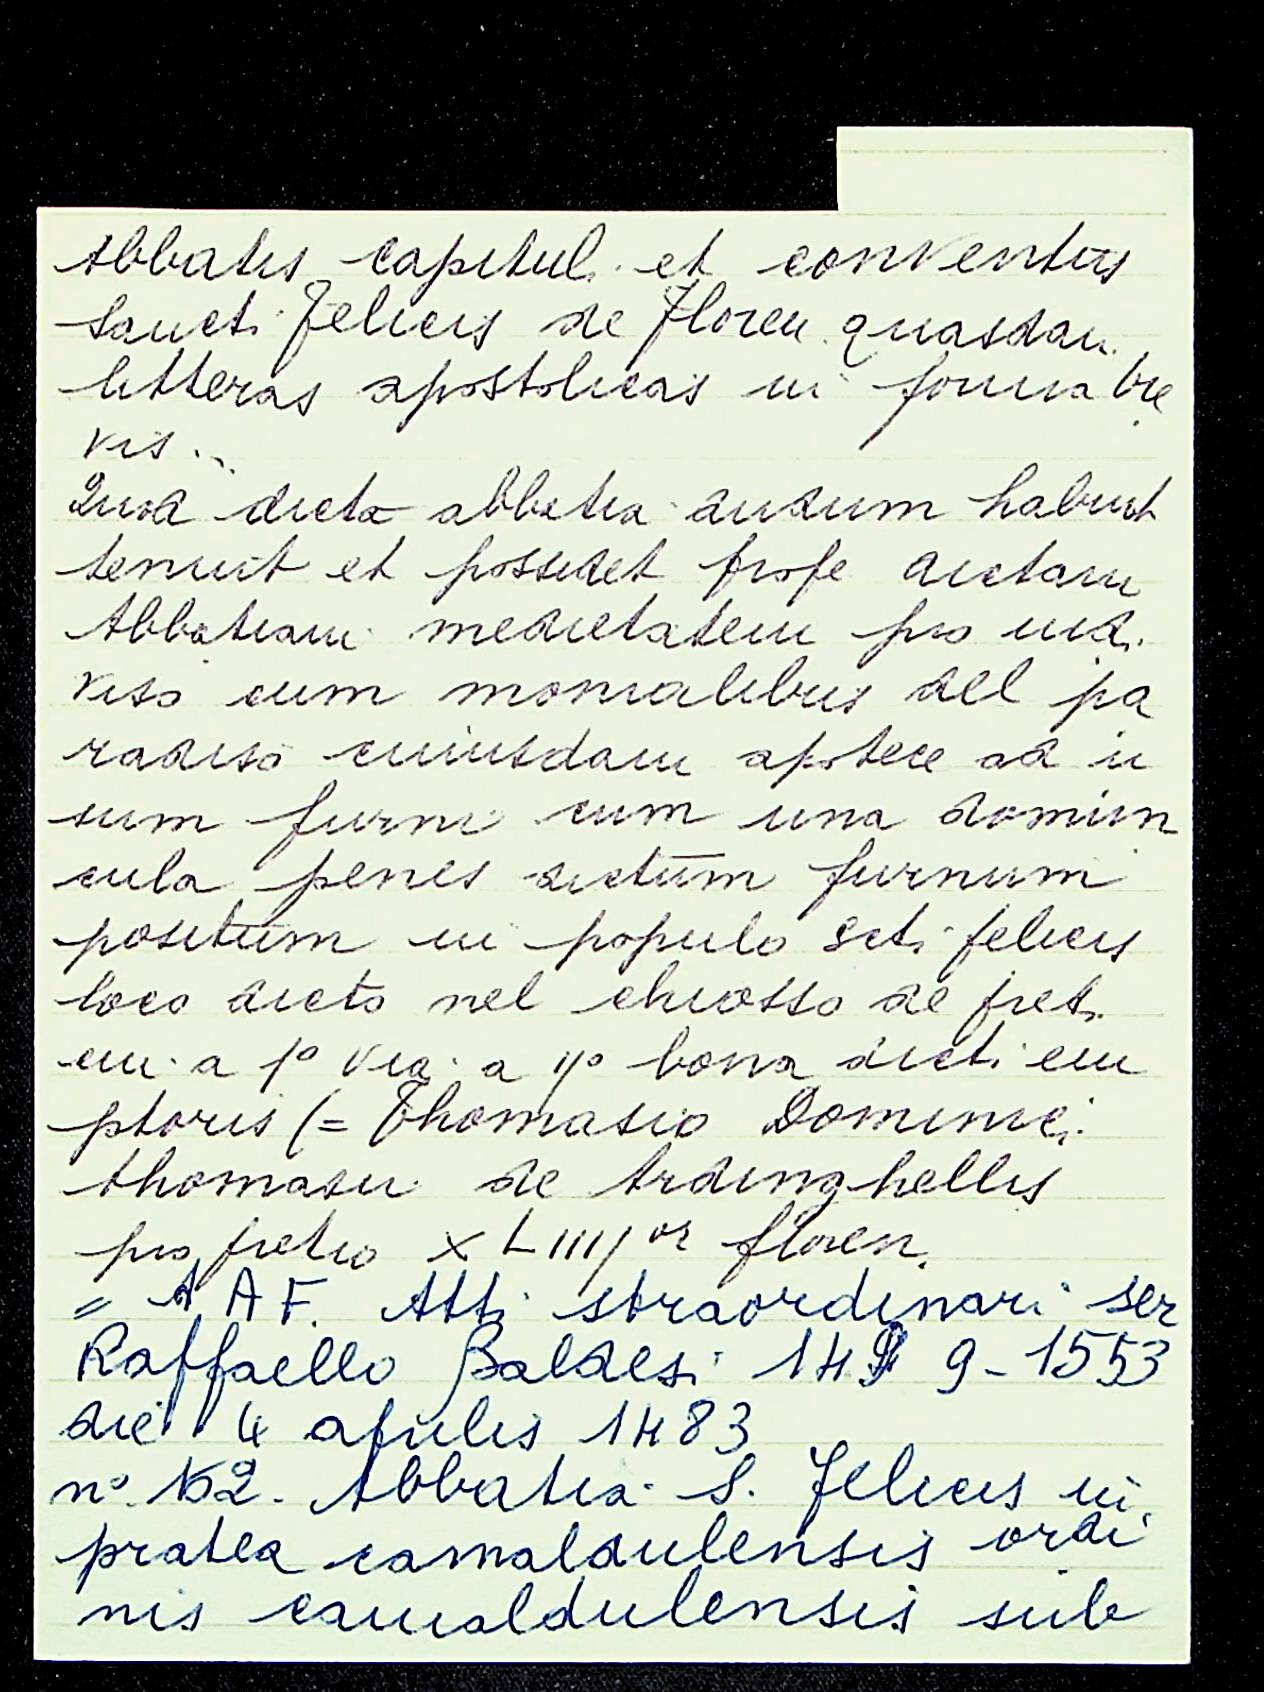 Abbatis capitul. et conventus
Sancti Felicis de Floren quasdam
litteras apostolicas in forma bre
vis...
Quod dicta abbatia dudum habuit
tenuit et possidet prope dictam
Abbatiam medietatem pro indi
viso cum monialibus del pa
radiso cuiusdam apotece ad u
sum furni cum una domun
cula penes dictum furnum
positum in populo Scti felicis
loco dicto nel chiosso de
cui a 1º via a 11º bona dicti em
ptoris (= Thomasio Dominici
thomasii de Ardinghellis
pro pretio XLIIIIor floren.
= A A F. Atti straordinari ser
Raffaello Baldesi 14 9-1553
die 4 aprilis 1483
nº 152. Abbatia S. Felicis in
platea camaldulensis ordi
nis camaldulensis sub